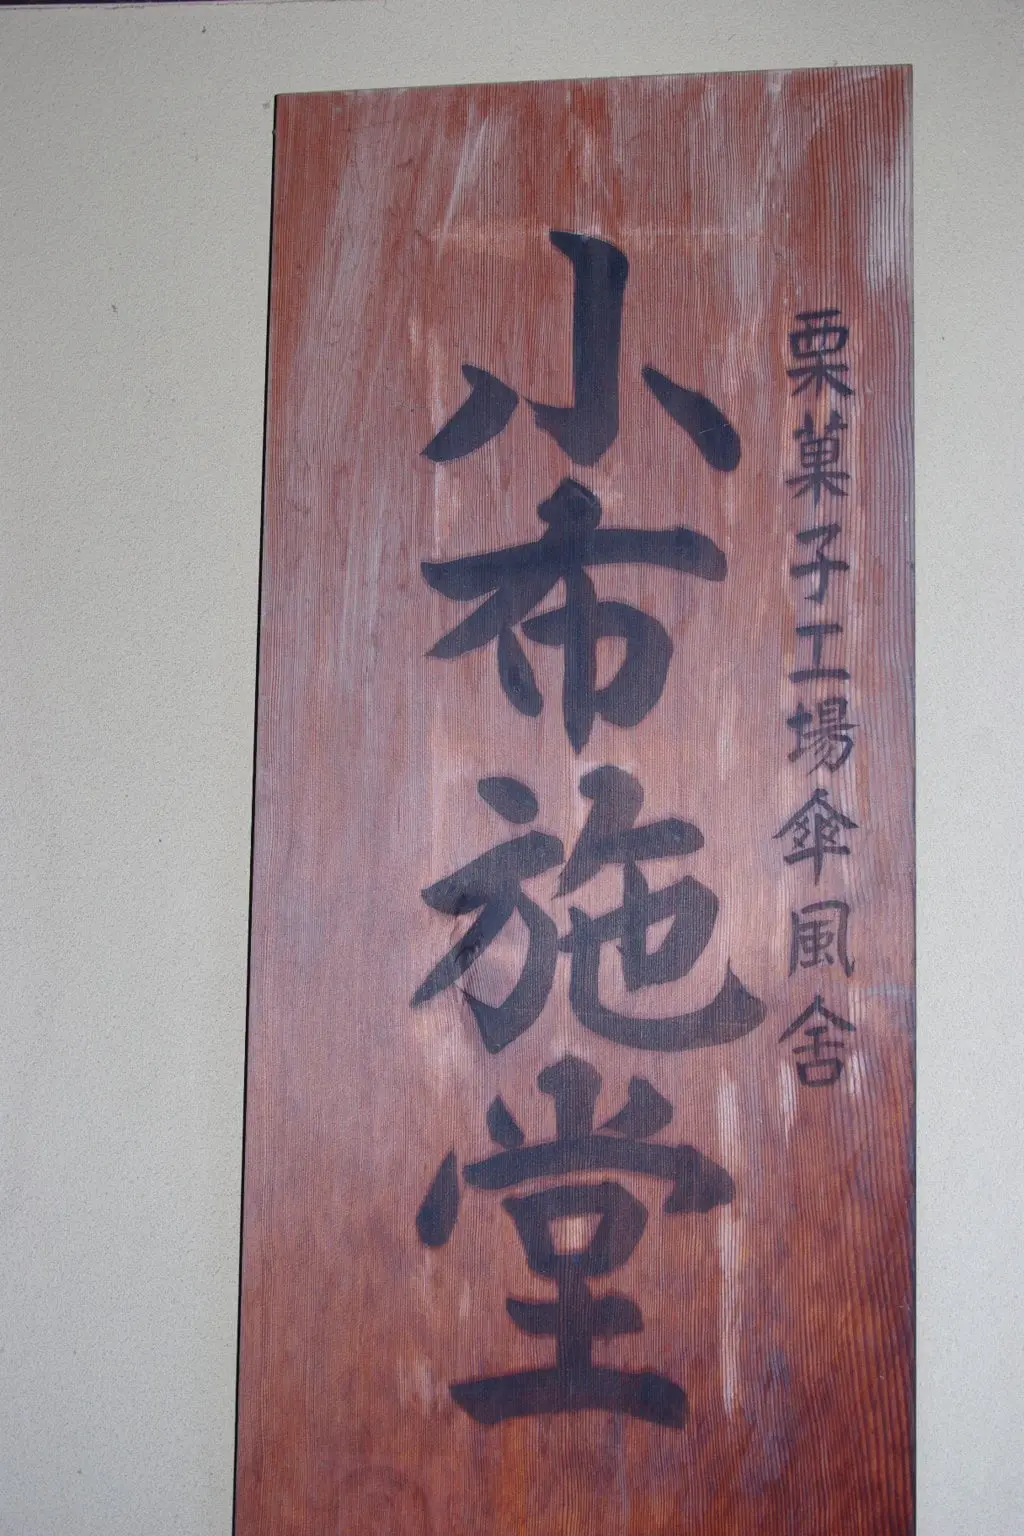 栗菓子工場傘風舎
小布施堂